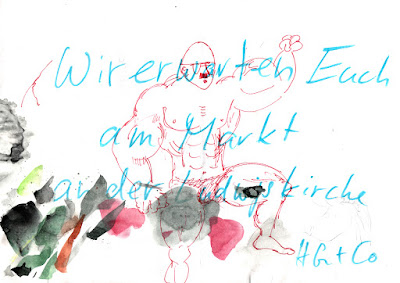 Wir erwarten Euch
am Markt
an der Ludwigskirche
HGr + Co